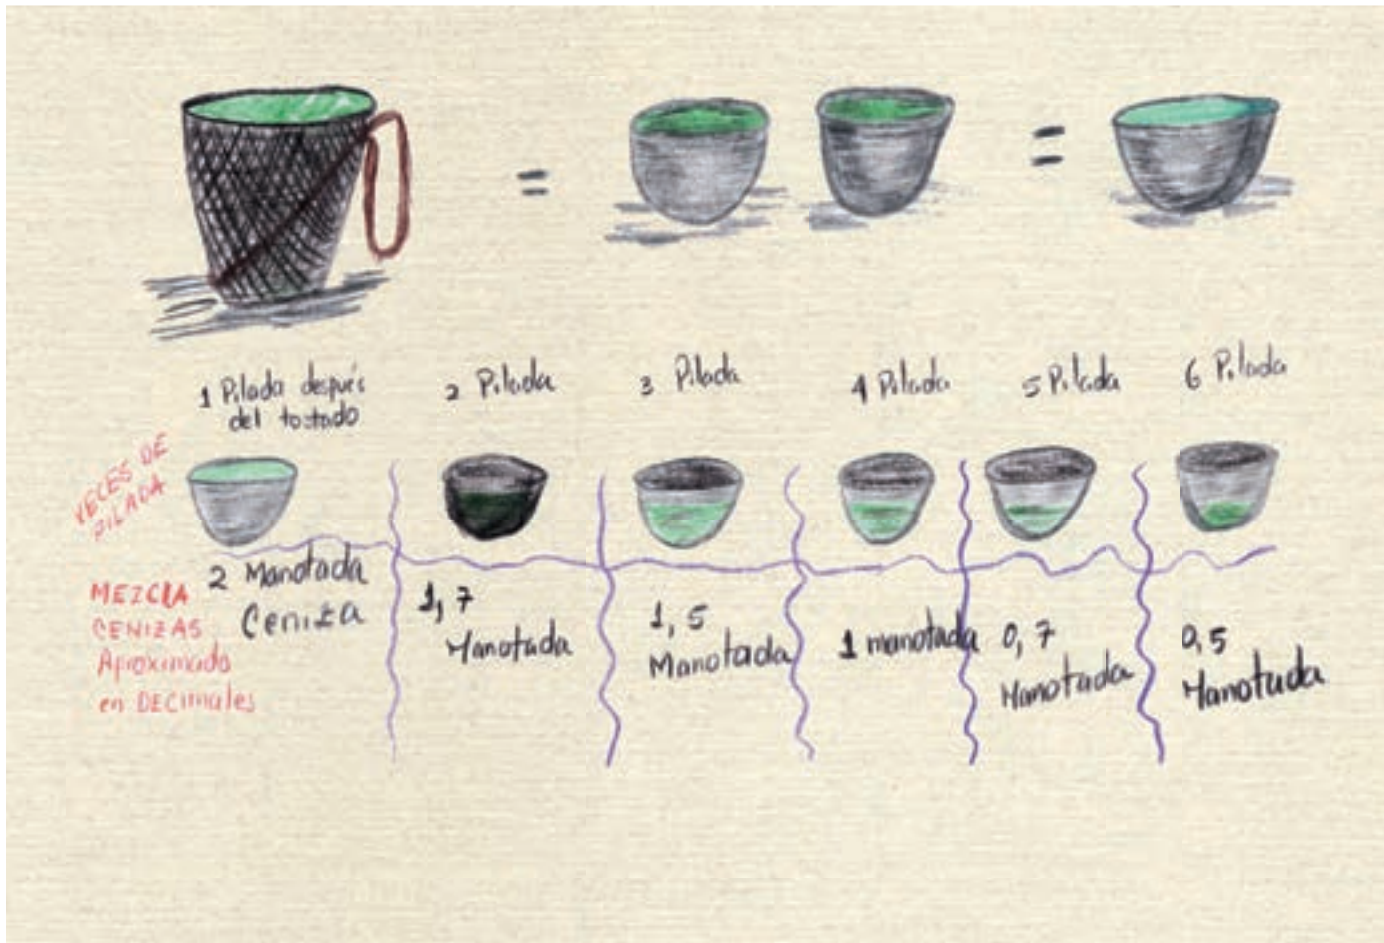 =
=
1 Pilada después
del tostado
2 Pilada
3 Pilada
4 Pilada
5 Pilada
6 Pilada
VECES DE
PILADA
MEZCLA
CENIZAS
Aproximado
en DECimales
2 Manotada
Ceniza
1,7
Manotada
1,5
Manotada
1 manotada
0,7
Manotada
0,5
Manotada